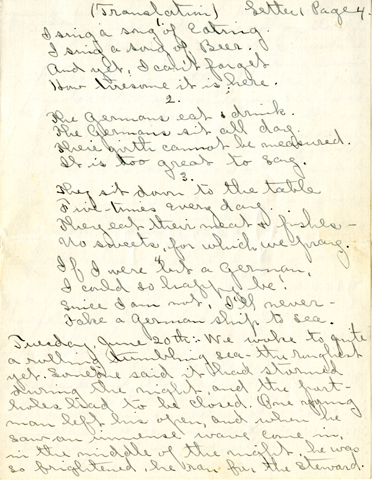 (Translation) Letter, Page 4.
I sing a song of Eating.
I sing a song of Beer.
And yet, I can't forget
How tiresome it is here.
2.
The Germans eat & drink.
The Germans sit all day.
Their girth cannot be measured.
It is too great to say.
3.
They sit down to the table
Five times every day.
They eat their meat & fishes -
No sweets, for which we pray.
4
If I were but a German,
I could so happy be!
Since I am not, I'll never -
Take a German ship to sea.
Tuesday, June 20th:- We woke to quite
a rolling tumbling sea - the roughest
yet. Someone said it had stormed
during the night, and the port-
holes had to be closed. One young
man left his open, and when he
saw an immense wave come in,
in the middle of the night, he was
so frightened, he ran for the Steward.